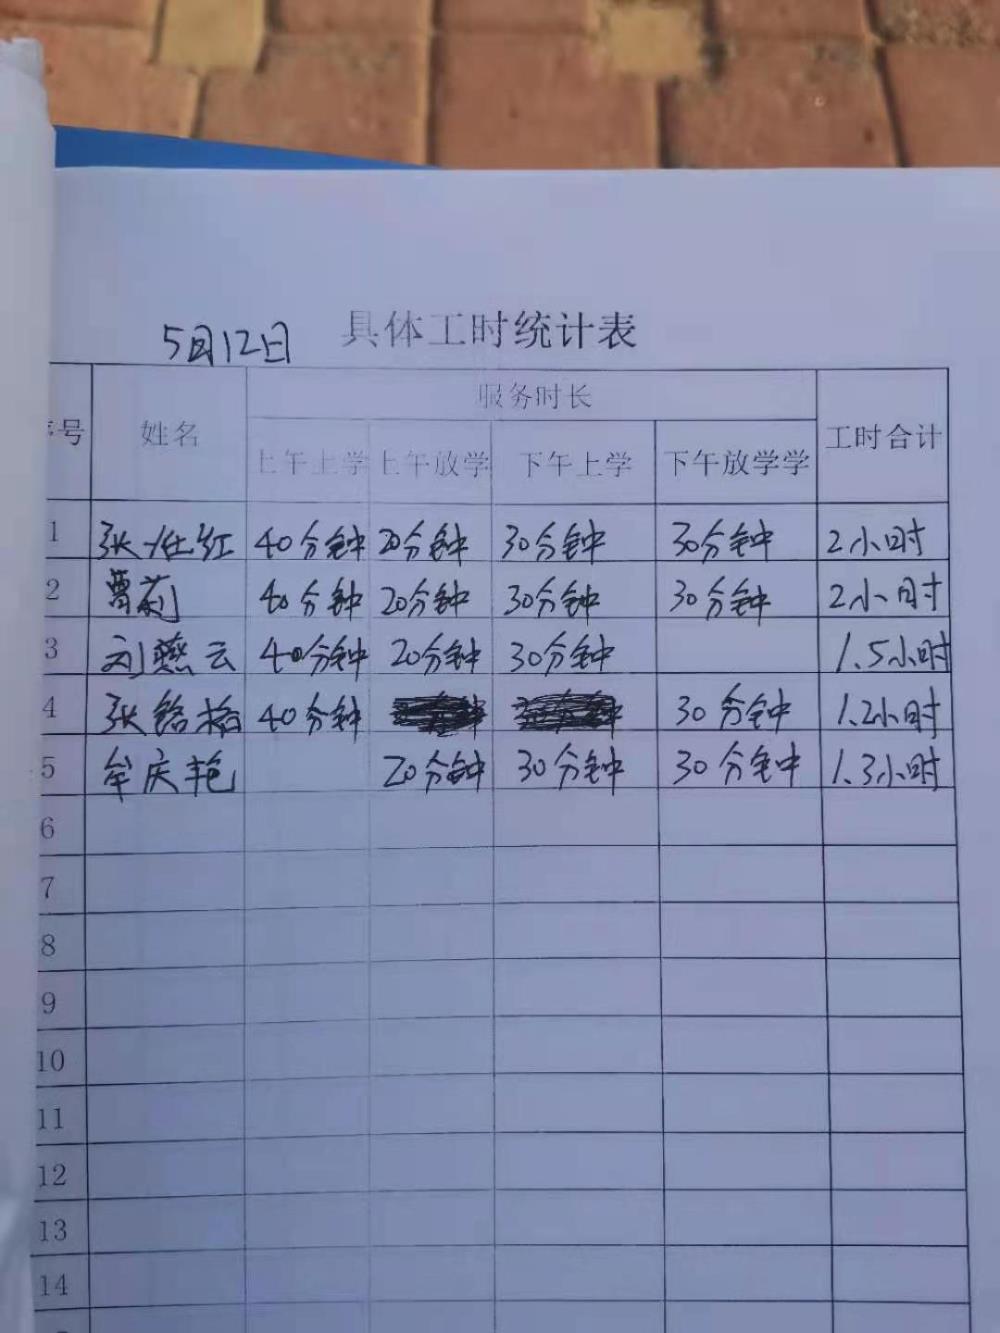 5月12日 具体工时统计表
号 姓名 服务时长 工时合计
上午上学 上午放学 下午上学 下午放学学
1 张仕红 40分钟 20分钟 30分钟 30分钟 2小时
2 曹莉 40分钟 20分钟 30分钟 30分钟 2小时
3 刘燕云 40分钟 20分钟 30分钟 1.5小时
4 张铭格 40分钟 30分钟 1.2小时
5 牟庆艳 20分钟 30分钟 30分钟 1.3小时
6
7
8
9
10
11
12
13
14